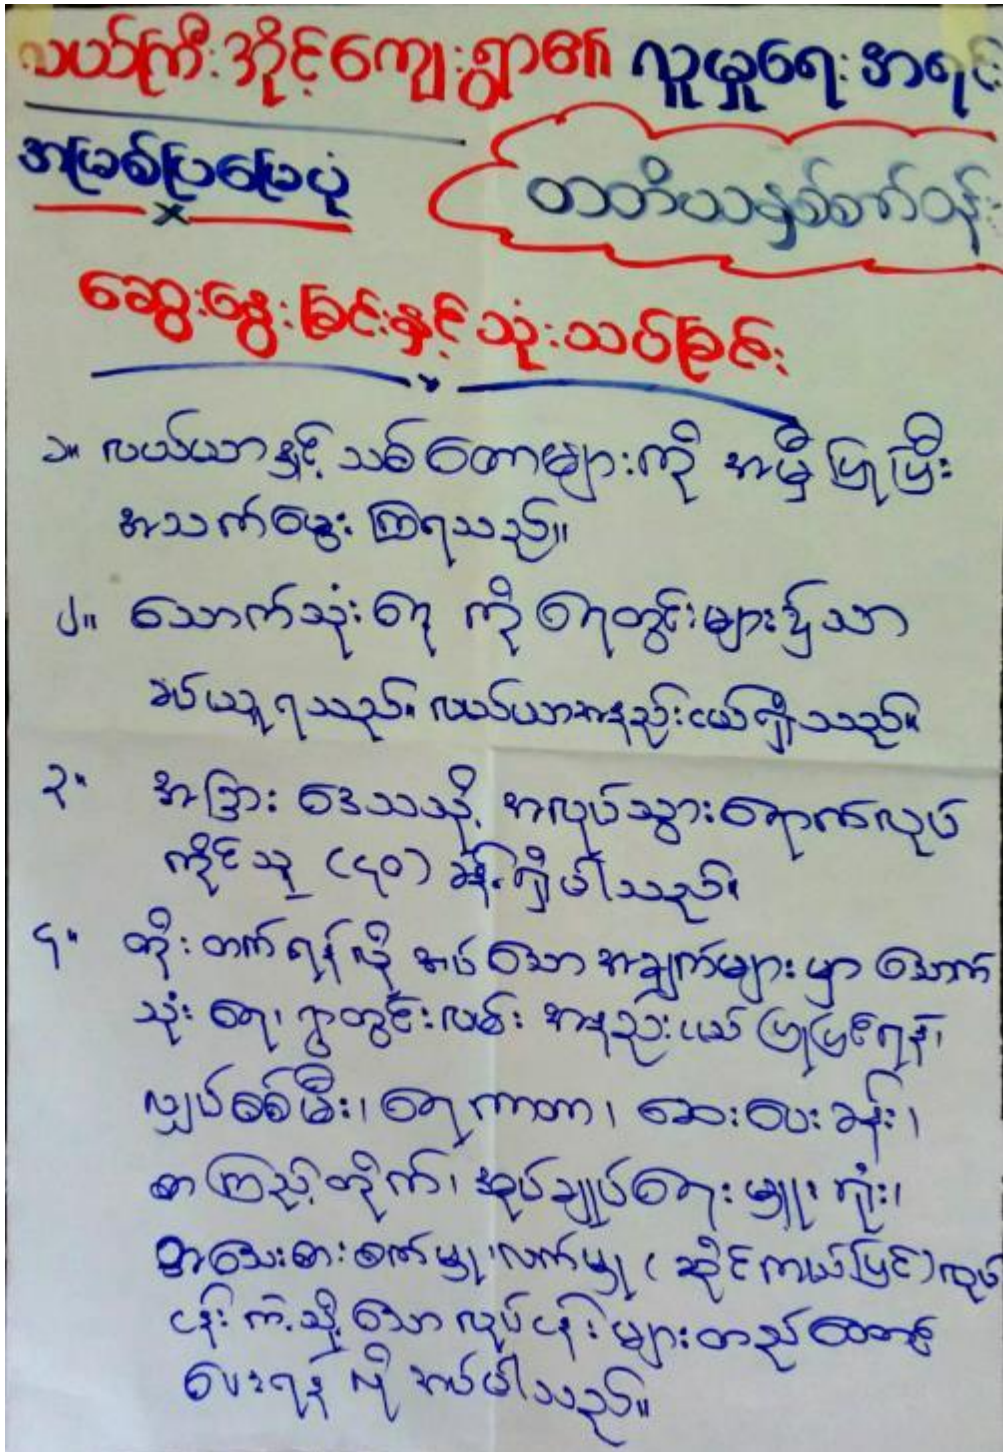 လယ်ကြီးအိုင့်ကျေးရွာ၏ လူမှုရေးအရင်း
အမြစ်ပြမြေပုံ
တတိယနှစ်စက်ဝန်း
ဆွေးနွေးခြင်းနှင့် သုံးသပ်ခြင်း
၁။ လယ်ယာနှင့် သစ်တောများကို အမှီပြုပြီး
အသက်မွေးကြရသည်။
၂။ သောက်သုံးရေ ကို ရေတွင်းများ၌သာ
ခပ်ယူရသည်။ လယ်ယာအနည်းငယ်ရှိသည်။
၃။ အခြား ဒေသသို့ အလုပ်သွားရောက်လုပ်
ကိုင်သူ (၄၀) ခန့်ရှိပါသည်။
၄။ တိုးတက်ရန်လိုအပ်သောအချက်များမှာ သောက်
သုံးရေ၊ ရွာတွင်းလမ်း အနည်းငယ် ပြုပြင်ရန်၊
လျှပ်စစ်မီး၊ ရေကာတာ၊ ဆေးပေးခန်း၊
စာကြည့်တိုက်၊ အုပ်ချုပ်ရေးမှူးရုံး၊
အသေးစားစက်မှု၊ လက်မှု (ဆိုင်ကယ်ပြင်) လုပ်
ငန်း ကဲ့သို့သော လုပ်ငန်းများတည်ထောင်
ပေးရန် လိုအပ်ပါသည်။